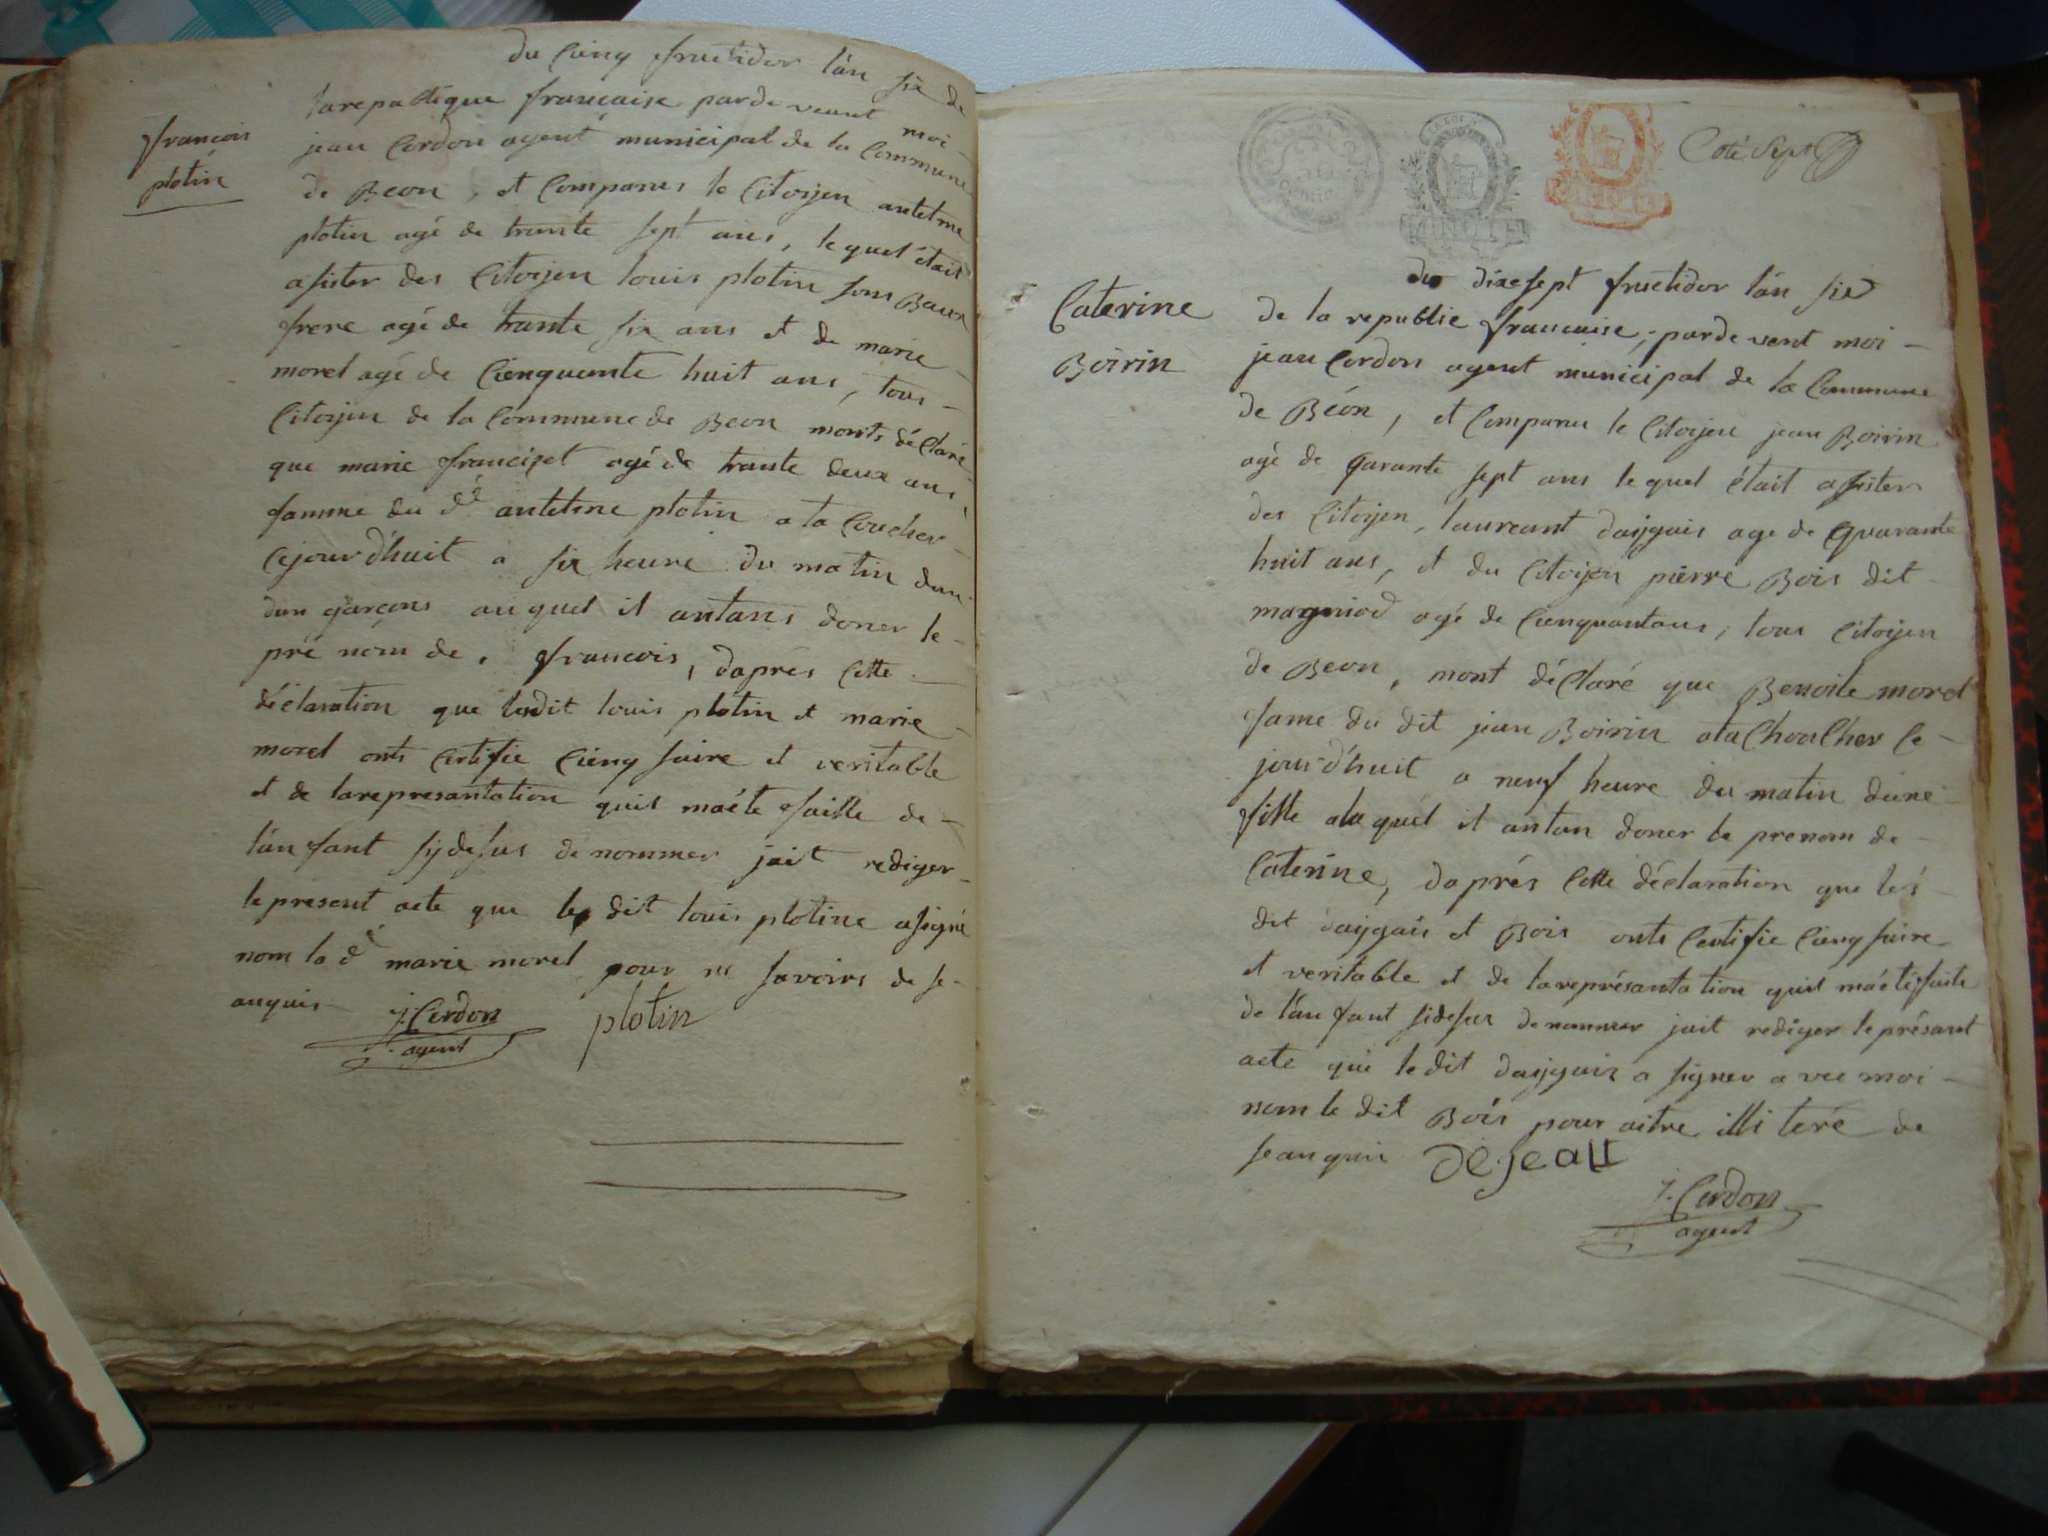 du Cienq fructidor lán six de
larepublique francaise parde veant moi
jean Cerdon agent municipal de la Commune
de Beon, et Comparus le Citoijen antelme
plotin agé de trante sept ans, le quel était
asister des Citoijen louis plotin son Baux
frere agé de trante six ans et de marie
morel agé de Cienquante huit ans, tous
Citoijen de la Commune de Beon monts déClaré
que marie francizet agé de trante deux ans,
famme du dt antelme plotin a la Coucher
Cejourd'huit a six heure du matin dun
dun garcons auquel il antans doner le
pré nóm de, francois, daprés Cette
déclaration que ledit louis plotin et marie
morel onts Certifie Cienq faire et veritable
et de larepresantation quil maéte faitte de
lánfant sijdesus denommer jait rediger
le present acte que le dit louis plotine asigné
nom la dt marie morel pour ne savoirs de se
anquis
J. Cerdon
agent
plotin
francois
plotin
Coté Sept
du dixesept fructidor lán six
de la republic francaise, parde vent moi
jean Cerdon agent municipal de la Commune
de Béon, et Comparu le Citoijen jean Boirin
agé de qarante sept ans le quel était asister
des Citoijen, laureant daijgais age de quarante
huit ans, et du Citoijen piérre Bois dit
magniod agé de Cienquantans, tous Citoijen
de Beon, mont déClaré que Benoite morel
fame du dit jean Boirin ala ChouCher Ce
jourd'huit a neuf heure du matin dune
fille ala quel il antan doner le prenom de
Caterine, daprés Cette déclaration que lés
dit daijgais et Bois onts Certifie Cienq faire
et veritable et de lareprésantation quil maétéfaite
de lánfant sidesus denommer jait rediger le présant
acte que le dit daijgais a signer avec moi
nom le dit Bois pour aitre illi teré de
se anquir
DéJeaU
J. Cerdon
agent
Caterine
Boirin